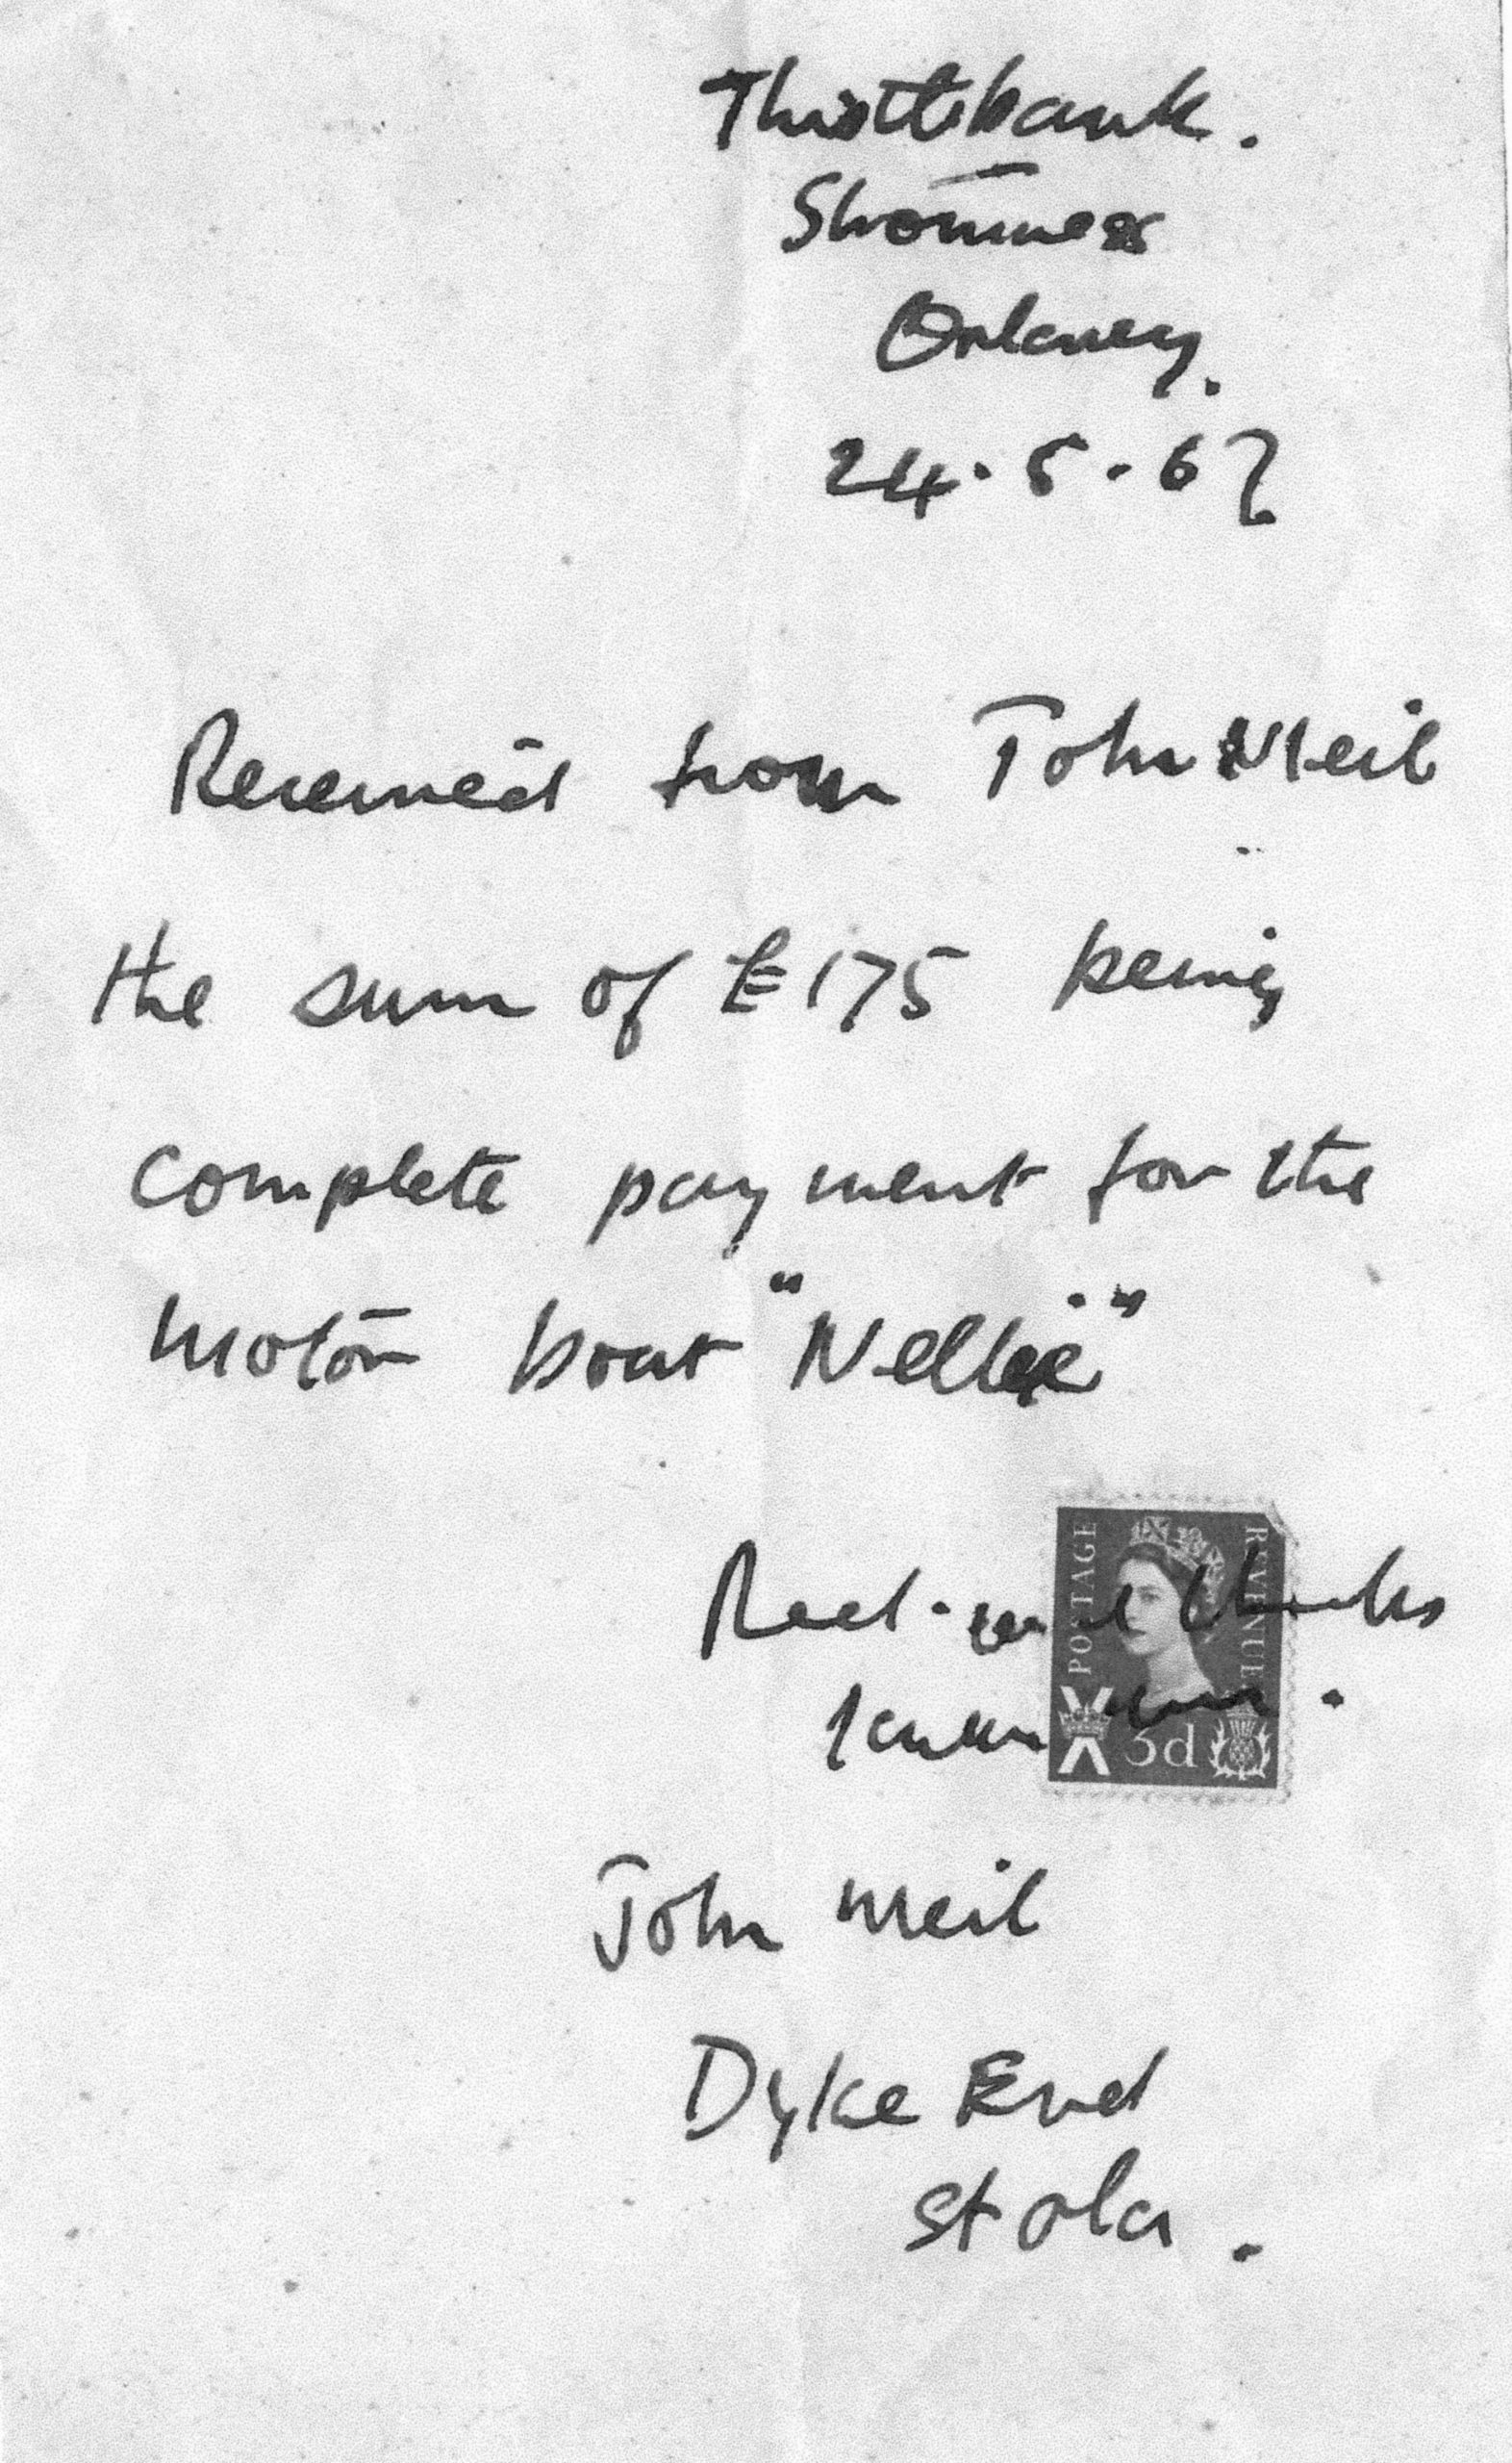 Thistlebank.
Stromness
Orkney.
24.5.62
Received from John Meil
the sum of £175 being
complete payment for the
motor boat "Nellie"
Recd. with thanks
POSTAGE
REVENUE
3d
John Meil
Dyke End
St Ola.